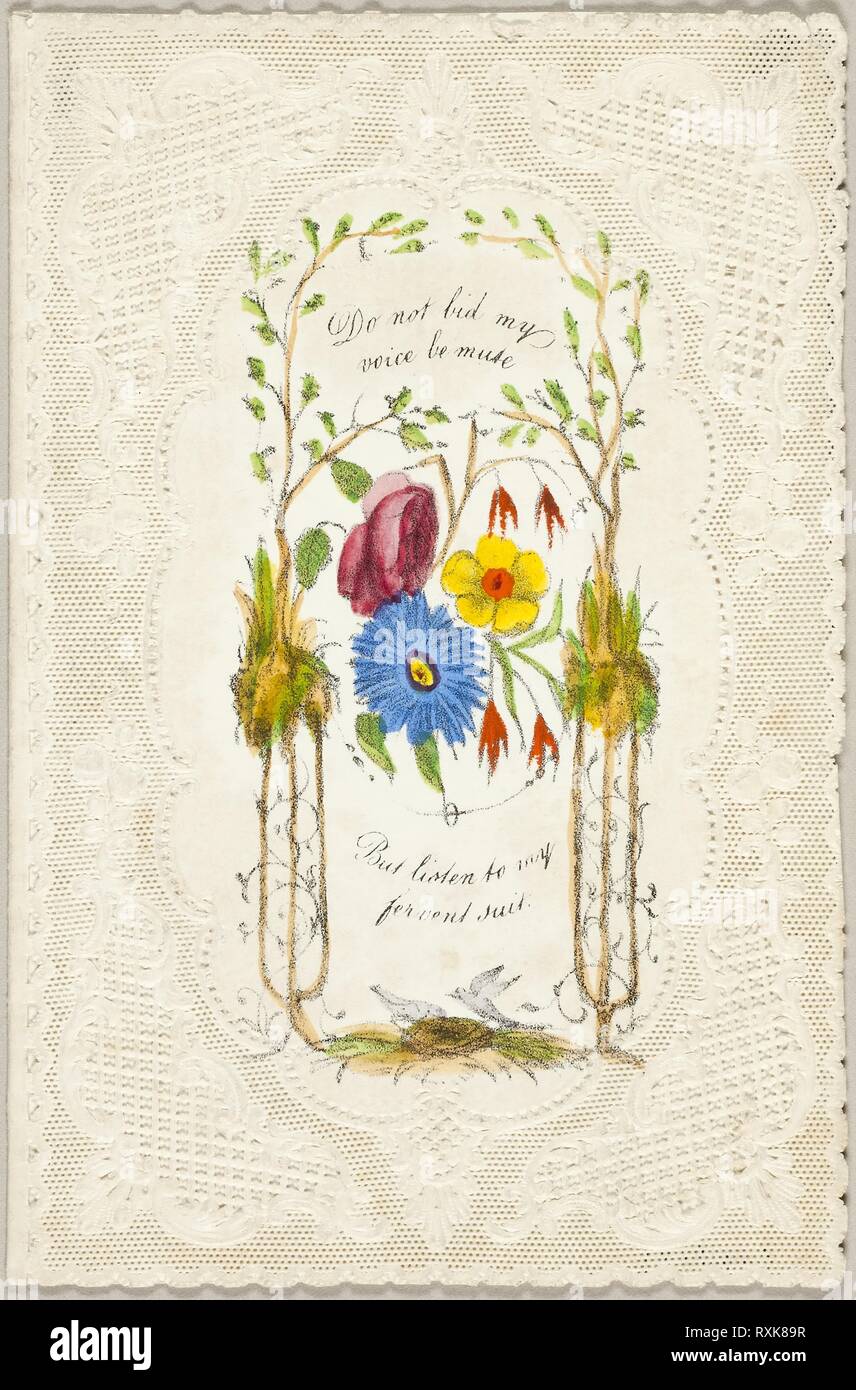 Do not bid my
voice be mute
But listen to my
fervent suit.
alamy
alamy
Image ID: RXK89R
www.alamy.com